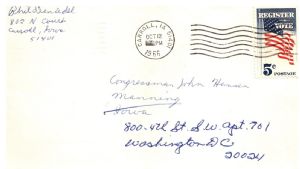 802 N Court
Carroll, Iowa
51401
CARROLL, IA
OCT 12
PM
1966
REGISTER
VOTE
5c POSTAGE
Congressman John Hansen
Manning
Iowa
800-4th St S.W. Apt. 701
Washington DC
20024